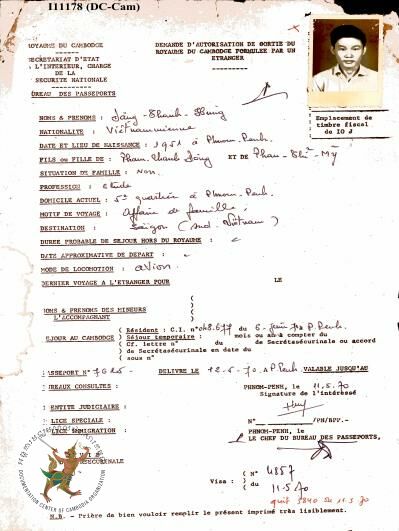 I11178 (DC-Cam)
ROYAUME DU CAMBODGE
SECRETARIAT D'ETAT
A L'INTERIEUR, CHARGE
DE LA
SECURITE NATIONALE
BUREAU DES PASSEPORTS
DEMANDE D'AUTORISATION DE SORTIE DU
ROYAUME DU CAMBODGE FORMULEE PAR UN
ETRANGER
Emplacement de
timbre fiscal
de 10 J
NOMS & PRENOMS : -Thanh-Hung
NATIONALITE : Vietnamienne
DATE ET LIEU DE NAISSANCE : 1951 à Phnom-Penh
FILS ou FILLE DE : Pham-Thanh ET DE Phan-Thi-My
SITUATION DE FAMILLE : Non
PROFESSION : etude
DOMICILE ACTUEL : 5è quartier à Phnom-Penh
MOTIF DE VOYAGE : affaire de famille
DESTINATION : Saigon (sud. Vietnam)
DUREE PROBABLE DE SEJOUR HORS DU ROYAUME :
DATE APPROXIMATIVE DE DEPART :
MODE DE LOCOMOTION : avion
DERNIER VOYAGE A L'ETRANGER POUR LE
NOMS & PRENOMS DES MINEURS
L'ACCOMPAGNANT
SEJOUR AU CAMBODGE
Résident : C.I. n° du 6. P. Penh.
Séjour temporaire : mois ou an à compter du
Cf. lettre n° du de Secrétasécurinale ou accord
de Secrétasécurinale en date du
sous n°
PASSEPORT N° DELIVRE LE 12-5-70 A P. Penh. VALABLE JUSQU'AU
BUREAUX CONSULTES :
PHNOM-PENH, le 11.5.70
Signature de l'intéressé
IDENTITE JUDICIAIRE :
POLICE SPECIALE :
POLICE IMMIGRATION :
N° /PN/BPP.-
PHNOM-PENH, le
LE CHEF DU BUREAU DES PASSEPORTS,
Visa :
N° 4857
du 11.5.70
5840 11.5.70
DOCUMENTATION CENTER OF CAMBODIA ORGANIZATION
N.B. - Prière de bien vouloir remplir le présent imprimé très lisiblement.